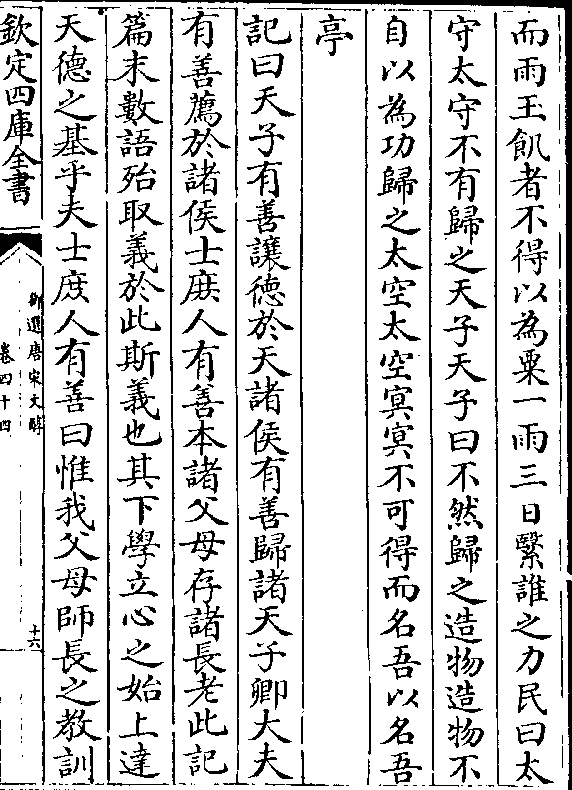 而雨玉飢者不得以為粟一雨三日繄誰之力民曰太
守太守不有歸之天子天子曰不然歸之造物造物不
自以為功歸之太空太空冥冥不可得而名吾以名吾
亭
記曰天子有善讓德於天諸侯有善歸諸天子卿大夫
有善薦於諸侯士庶人有善本諸父母存諸長老此記
篇末數語殆取義於此斯義也其下學立心之始上達
天德之基乎夫士庶人有善曰惟我父母師長之教訓
欽定四庫全書
御選唐宋文醇
卷四十四
十六